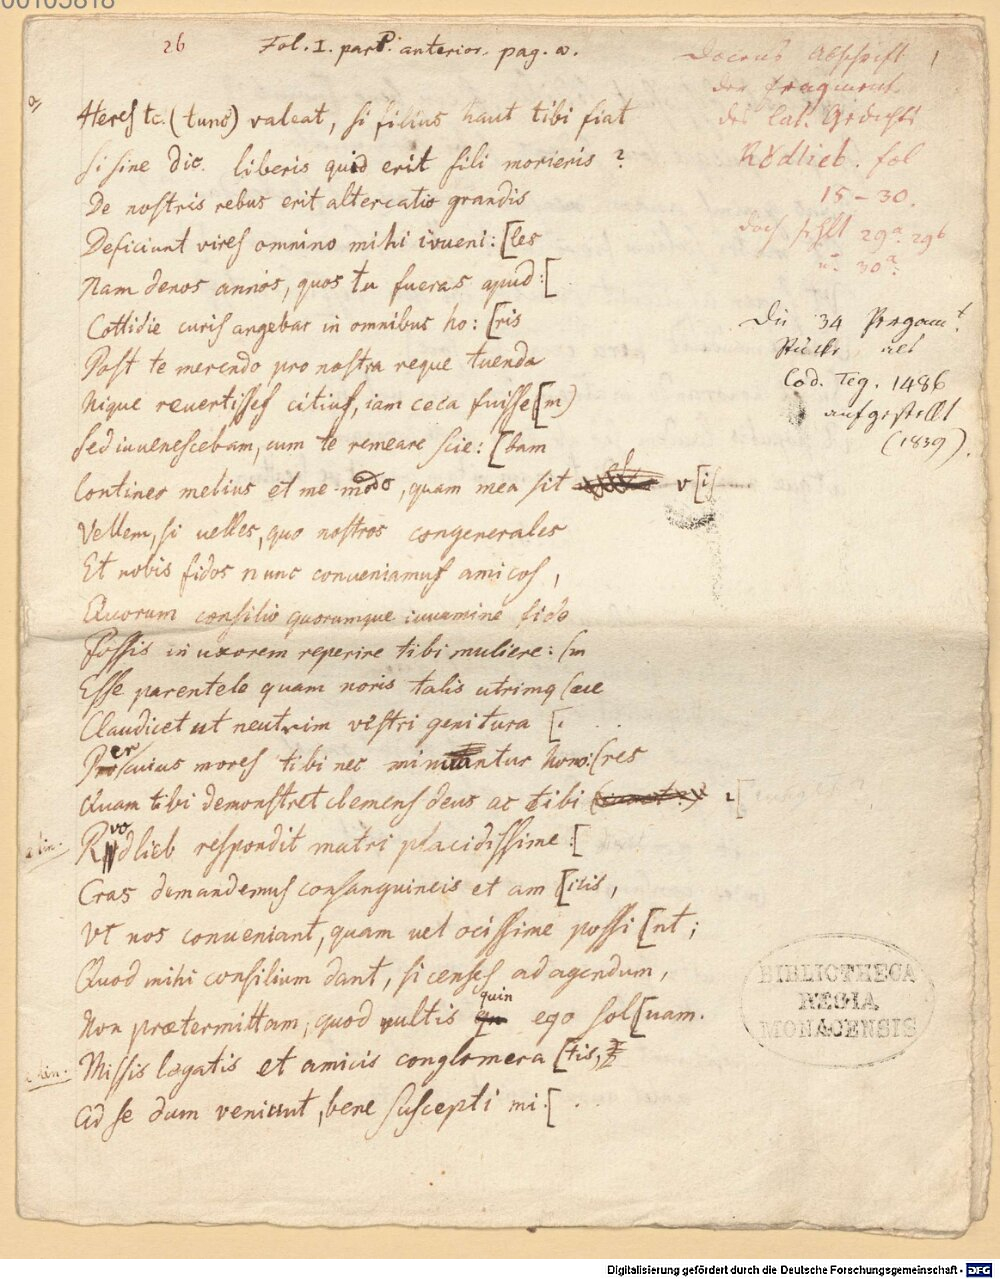 00105818
26 Fol. I. part. anterior. pag. a.
1
Docens Abschrift
der Fragment.
des lat. Gedichts
Rŏdlieb. fol
15 – 30.
doch fehlt 29a. 29b
u. 30a.
a,
Heres tc. (tuus) valeat, si filius haut tibi fiat
Si sine dic. liberis quid erit fili morieris ?
De nostris rebus erit altercatio grandis
Deficiunt vires omnino mihi ivueni: [les
Nam denos annos, quos tu fueras apud: [
Cottidie curis angebar in omnibus ho: [ris
Post te merendo pro nostra reque tuenda
Nique revertisses citius, iam ceca fuisse [m)
Sed iuuenescebam, cum te remeare scie: [bam
Contineo melius et me modo, quam mea sit v [is
Vellem, si uelles, quo nostros congenerales
Et nobis fidos nunc conueniamus amicos,
Quorum consilio quorumque iuuamine fido
Possis in uxorem reperire tibi muliere: [m
Esse parentele quam noris talis utrimq [ue
Claudicet ut neutrim vestri genitura [.
Per cuius mores tibi nec minuantur hono: [res
Quam tibi demonstret clemens deus ac tibi
a lin. Ruodlieb respondit matri placidissime: [
Cras demandemus consanguineis et am [icis,
Vt nos conueniant, quam uel ocissime possi [nt;
Quod mihi consilium dant, si censes ad agendum,
Non prætermittam, quod vultis quin ego sol [uam.
a lin. Missis legatis et amicis conglomera [tis,
Ad se dum veniunt, bene suscepti mi: [ . .
Die 34 Pergamt.
Stücke als
Cod. Teg. 1486
aufgestellt
(1839).
BIBLIOTHECA
REGIA
MONACENSIS
Digitalisierung gefördert durch die Deutsche Forschungsgemeinschaft - DFG